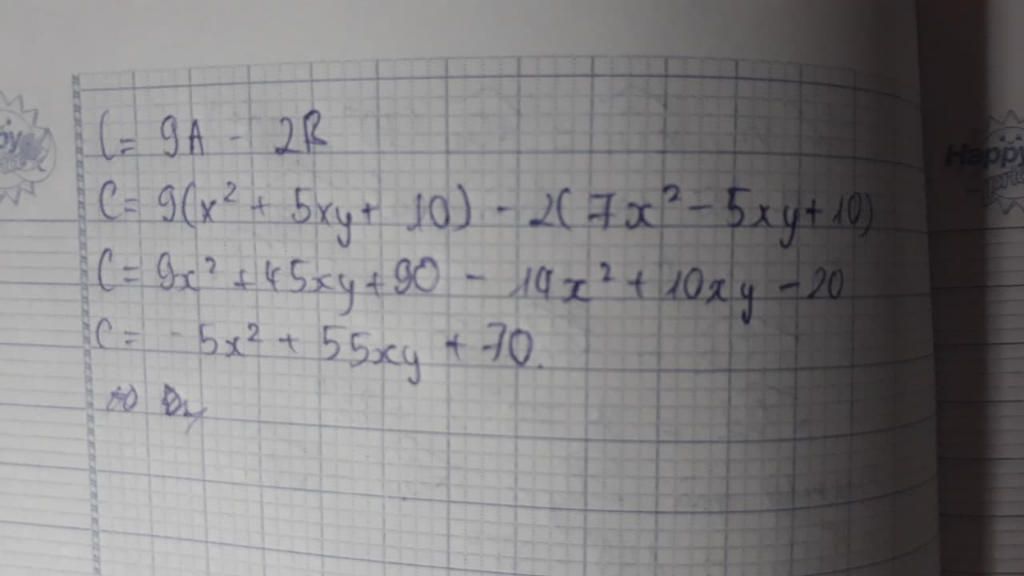 C = 9A - 2B
C = 9(x² + 5xy + 10) - 2(7x² - 5xy + 10)
C = 9x² + 45xy + 90 - 14x² + 10xy - 20
C = -5x² + 55xy + 70.
Happy